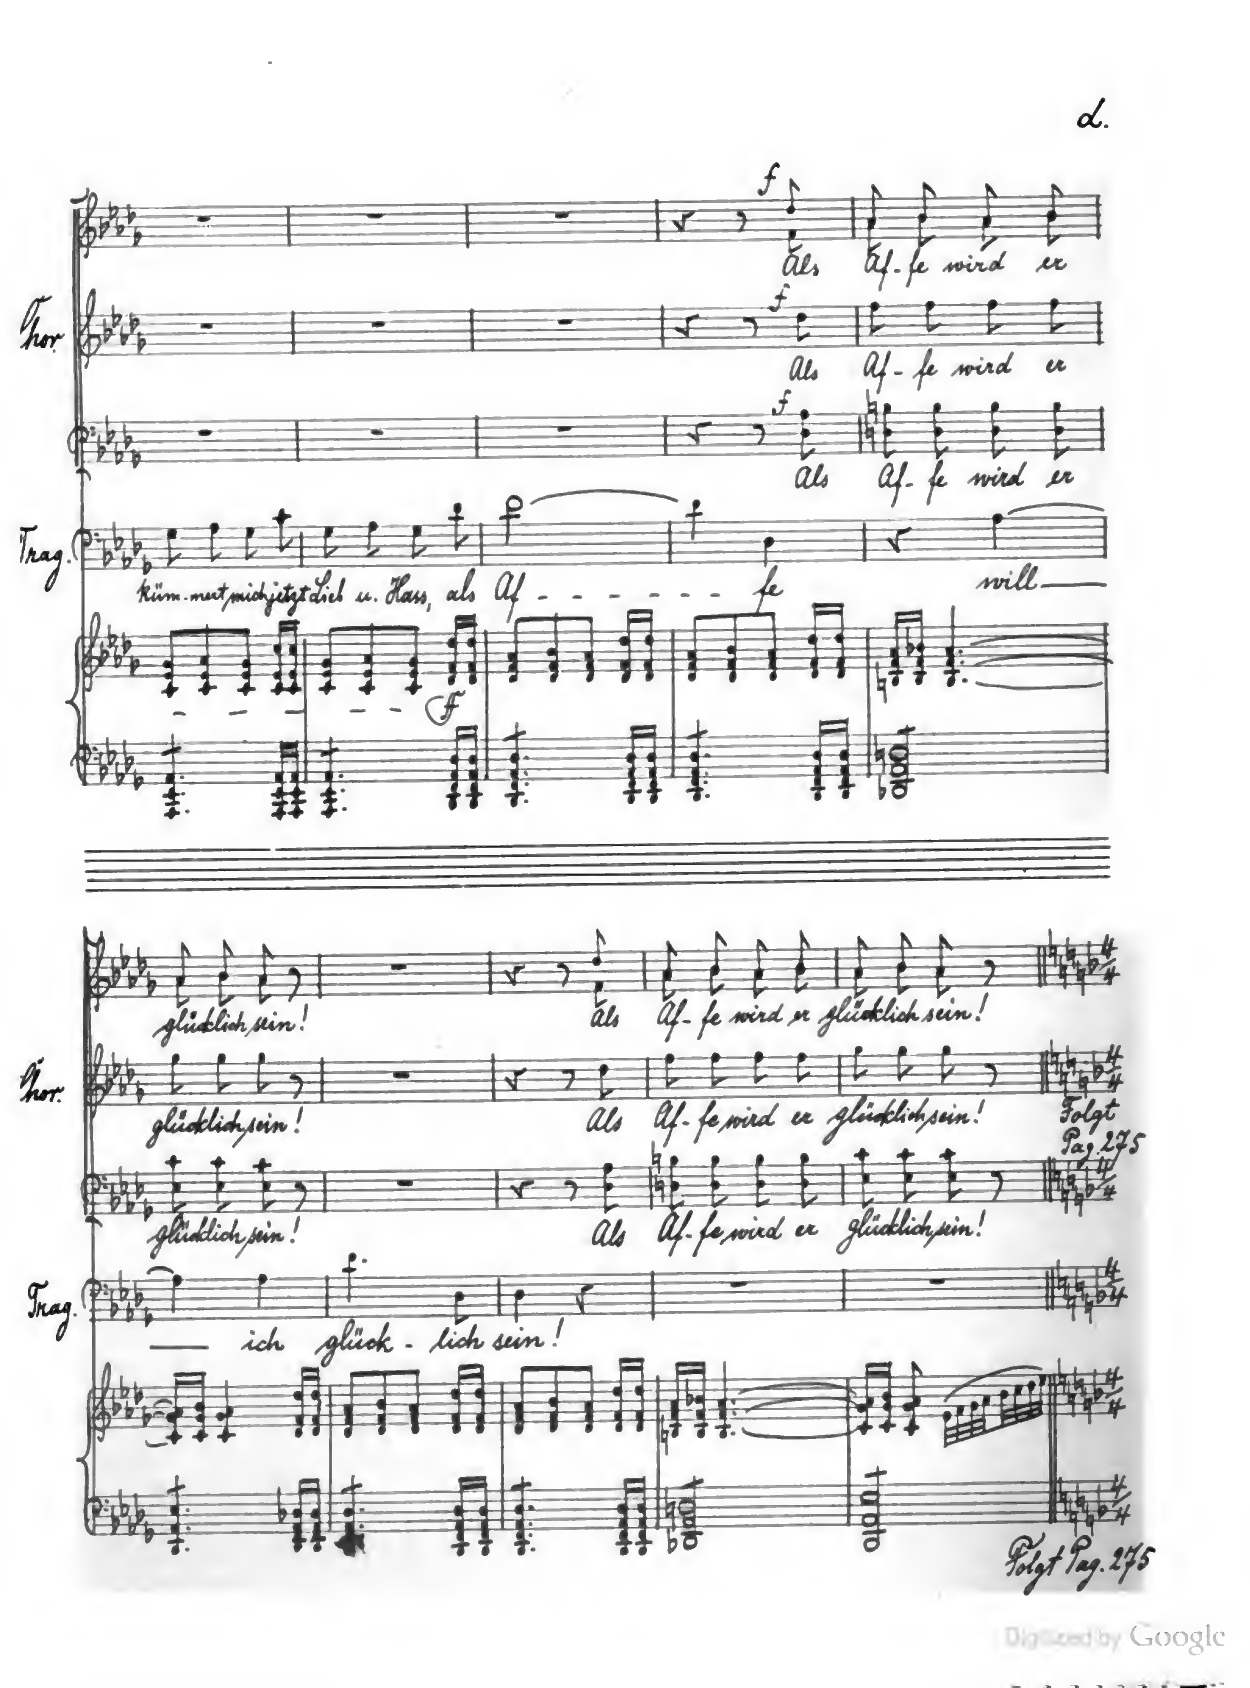 d.
f
Als Af-fe wird er
Chor.
f
Als Af-fe wird er
f
Als Af-fe wird er
Trag.
küm-mert mich jetzt Lieb u. Hass, als Af - - - - - - - fe will
f
glücklich sein! Als Af-fe wird er glücklich sein!
4/4
Chor.
4/4
glücklich sein! Als Af-fe wird er glücklich sein!
Folgt
Pag. 275
4/4
glücklich sein! Als Af-fe wird er glücklich sein!
Trag.
4/4
ich glück - lich sein!
4/4
4/4
Folgt Pag. 275
Digitized by Google